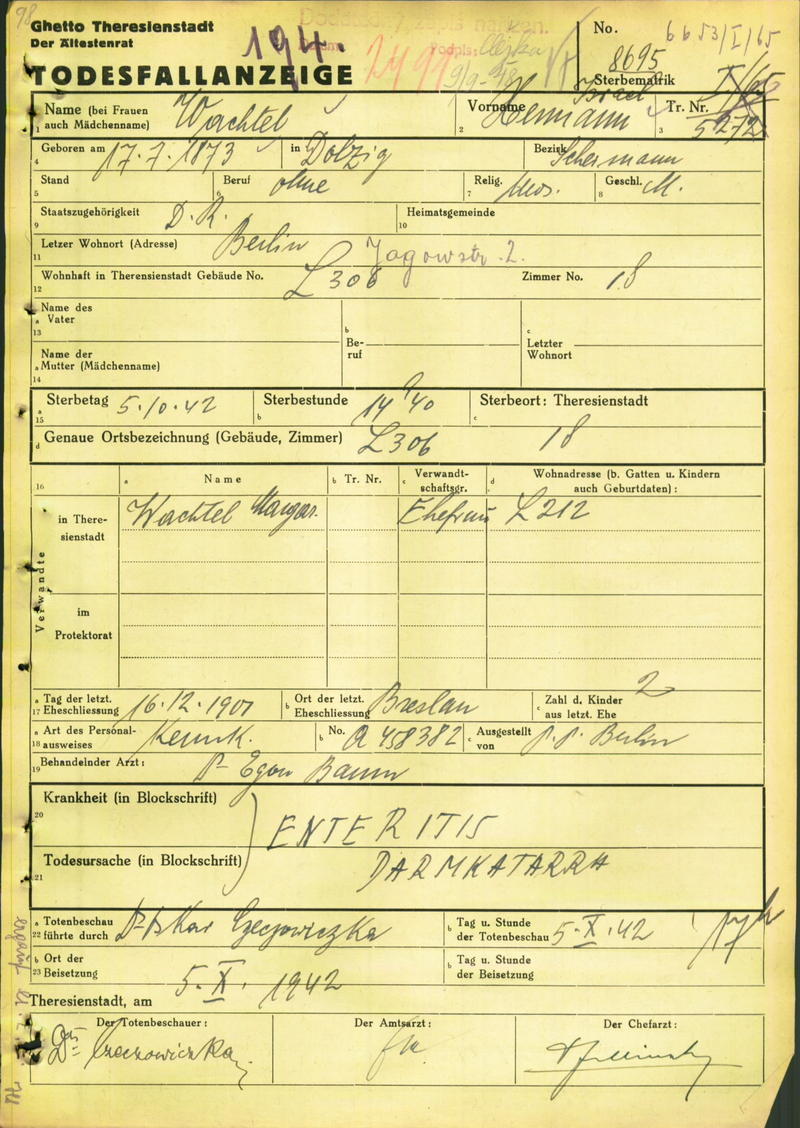 98
Ghetto Theresienstadt
Der Ältestenrat
194.
No. 8695
6653/I/65
TODESFALLANZEIGE
Sterbematrik
Name (bei Frauen auch Mädchenname) Wachtel
1
Israel
Vorname Hermann
2
Tr. Nr. I/65
5272
3
Geboren am 17.7.1873
4
in Dolzig
Bezirk Schermann
Stand
5
Beruf ohne
6
Relig. Mos.
7
Geschl. M.
8
Staatszugehörigkeit D.R.
9
Heimatsgemeinde
10
Letzer Wohnort (Adresse) Berlin Jagowstr. 2.
11
Wohnhaft in Therensienstadt Gebäude No. L 306
12
Zimmer No. 18
a Name des Vater
13
b Beruf
c Letzter Wohnort
a Name der Mutter (Mädchenname)
14
a Sterbetag 5.10.42
15
b Sterbestunde 14 40
c Sterbeort: Theresienstadt
d Genaue Ortsbezeichnung (Gebäude, Zimmer) L306 18
16
a Name
b Tr. Nr.
c Verwandtschaftsgr.
d Wohnadresse (b. Gatten u. Kindern auch Geburtdaten):
Verwandte
in Theresienstadt
Wachtel Margar. Ehefrau L 212
im Protektorat
a Tag der letzt. Eheschliessung 16.12.1901
17
b Ort der letzt. Eheschliessung Breslau
c Zahl d. Kinder aus letzt. Ehe 2
a Art des Personalausweises Kennk.
18
b No. A 458382
c Ausgestellt von P.P. Berlin
Behandelnder Arzt: Dr Egon Baum
19
Krankheit (in Blockschrift)
20
ENTERITIS
Todesursache (in Blockschrift)
21
DARMKATARRH
a Totenbeschau führte durch Dr Oskar Czeczowiczka
22
b Tag u. Stunde der Totenbeschau 5.X.42 17h
b Ort der Beisetzung
23
b Tag u. Stunde der Beisetzung
Theresienstadt, am 5.X.1942
Der Totenbeschauer:
Dr Czeczowiczka
Der Amtsarzt:
Der Chefarzt: